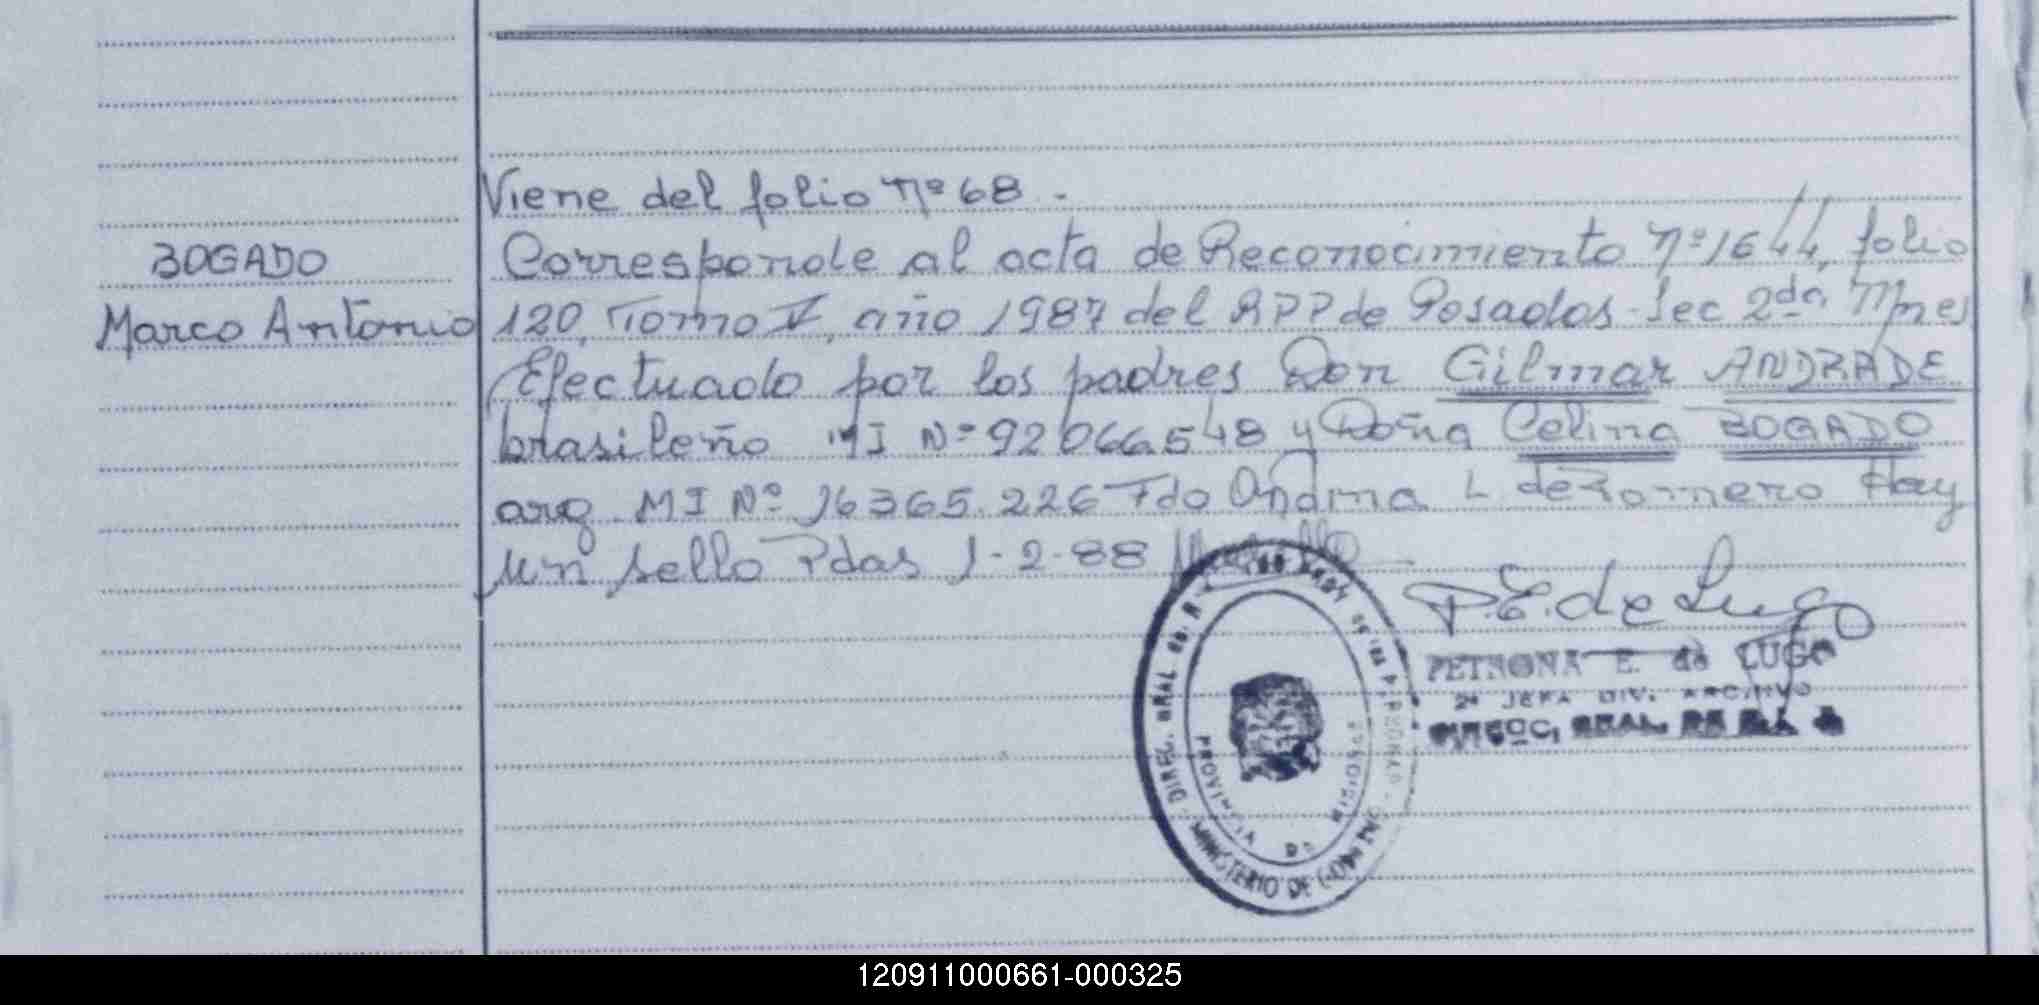 Viene del folio Nº 68 -
BOGADO
Marco Antonio
Corresponde al acta de Reconocimiento Nº 1644, folio
120, Tomo V, año 1987 del RPP de Posadas - Sec 2da Mnes
Efectuado por los padres Don Gilmar ANDRADE
brasileño MI Nº 92066548 y Doña Celina BOGADO
arg MI Nº 16365.226 Fdo Ondina L. de Romero Hay
un sello Pdas 1-2-88
P.E. de Lugo
PETRONA E. de LUGO
2ª JEFA DIV. ARCHIVO
DIRECC. GRAL.
PROVINCIA DE MISIONES
MINISTERIO DE GOBIERNO
120911000661-000325